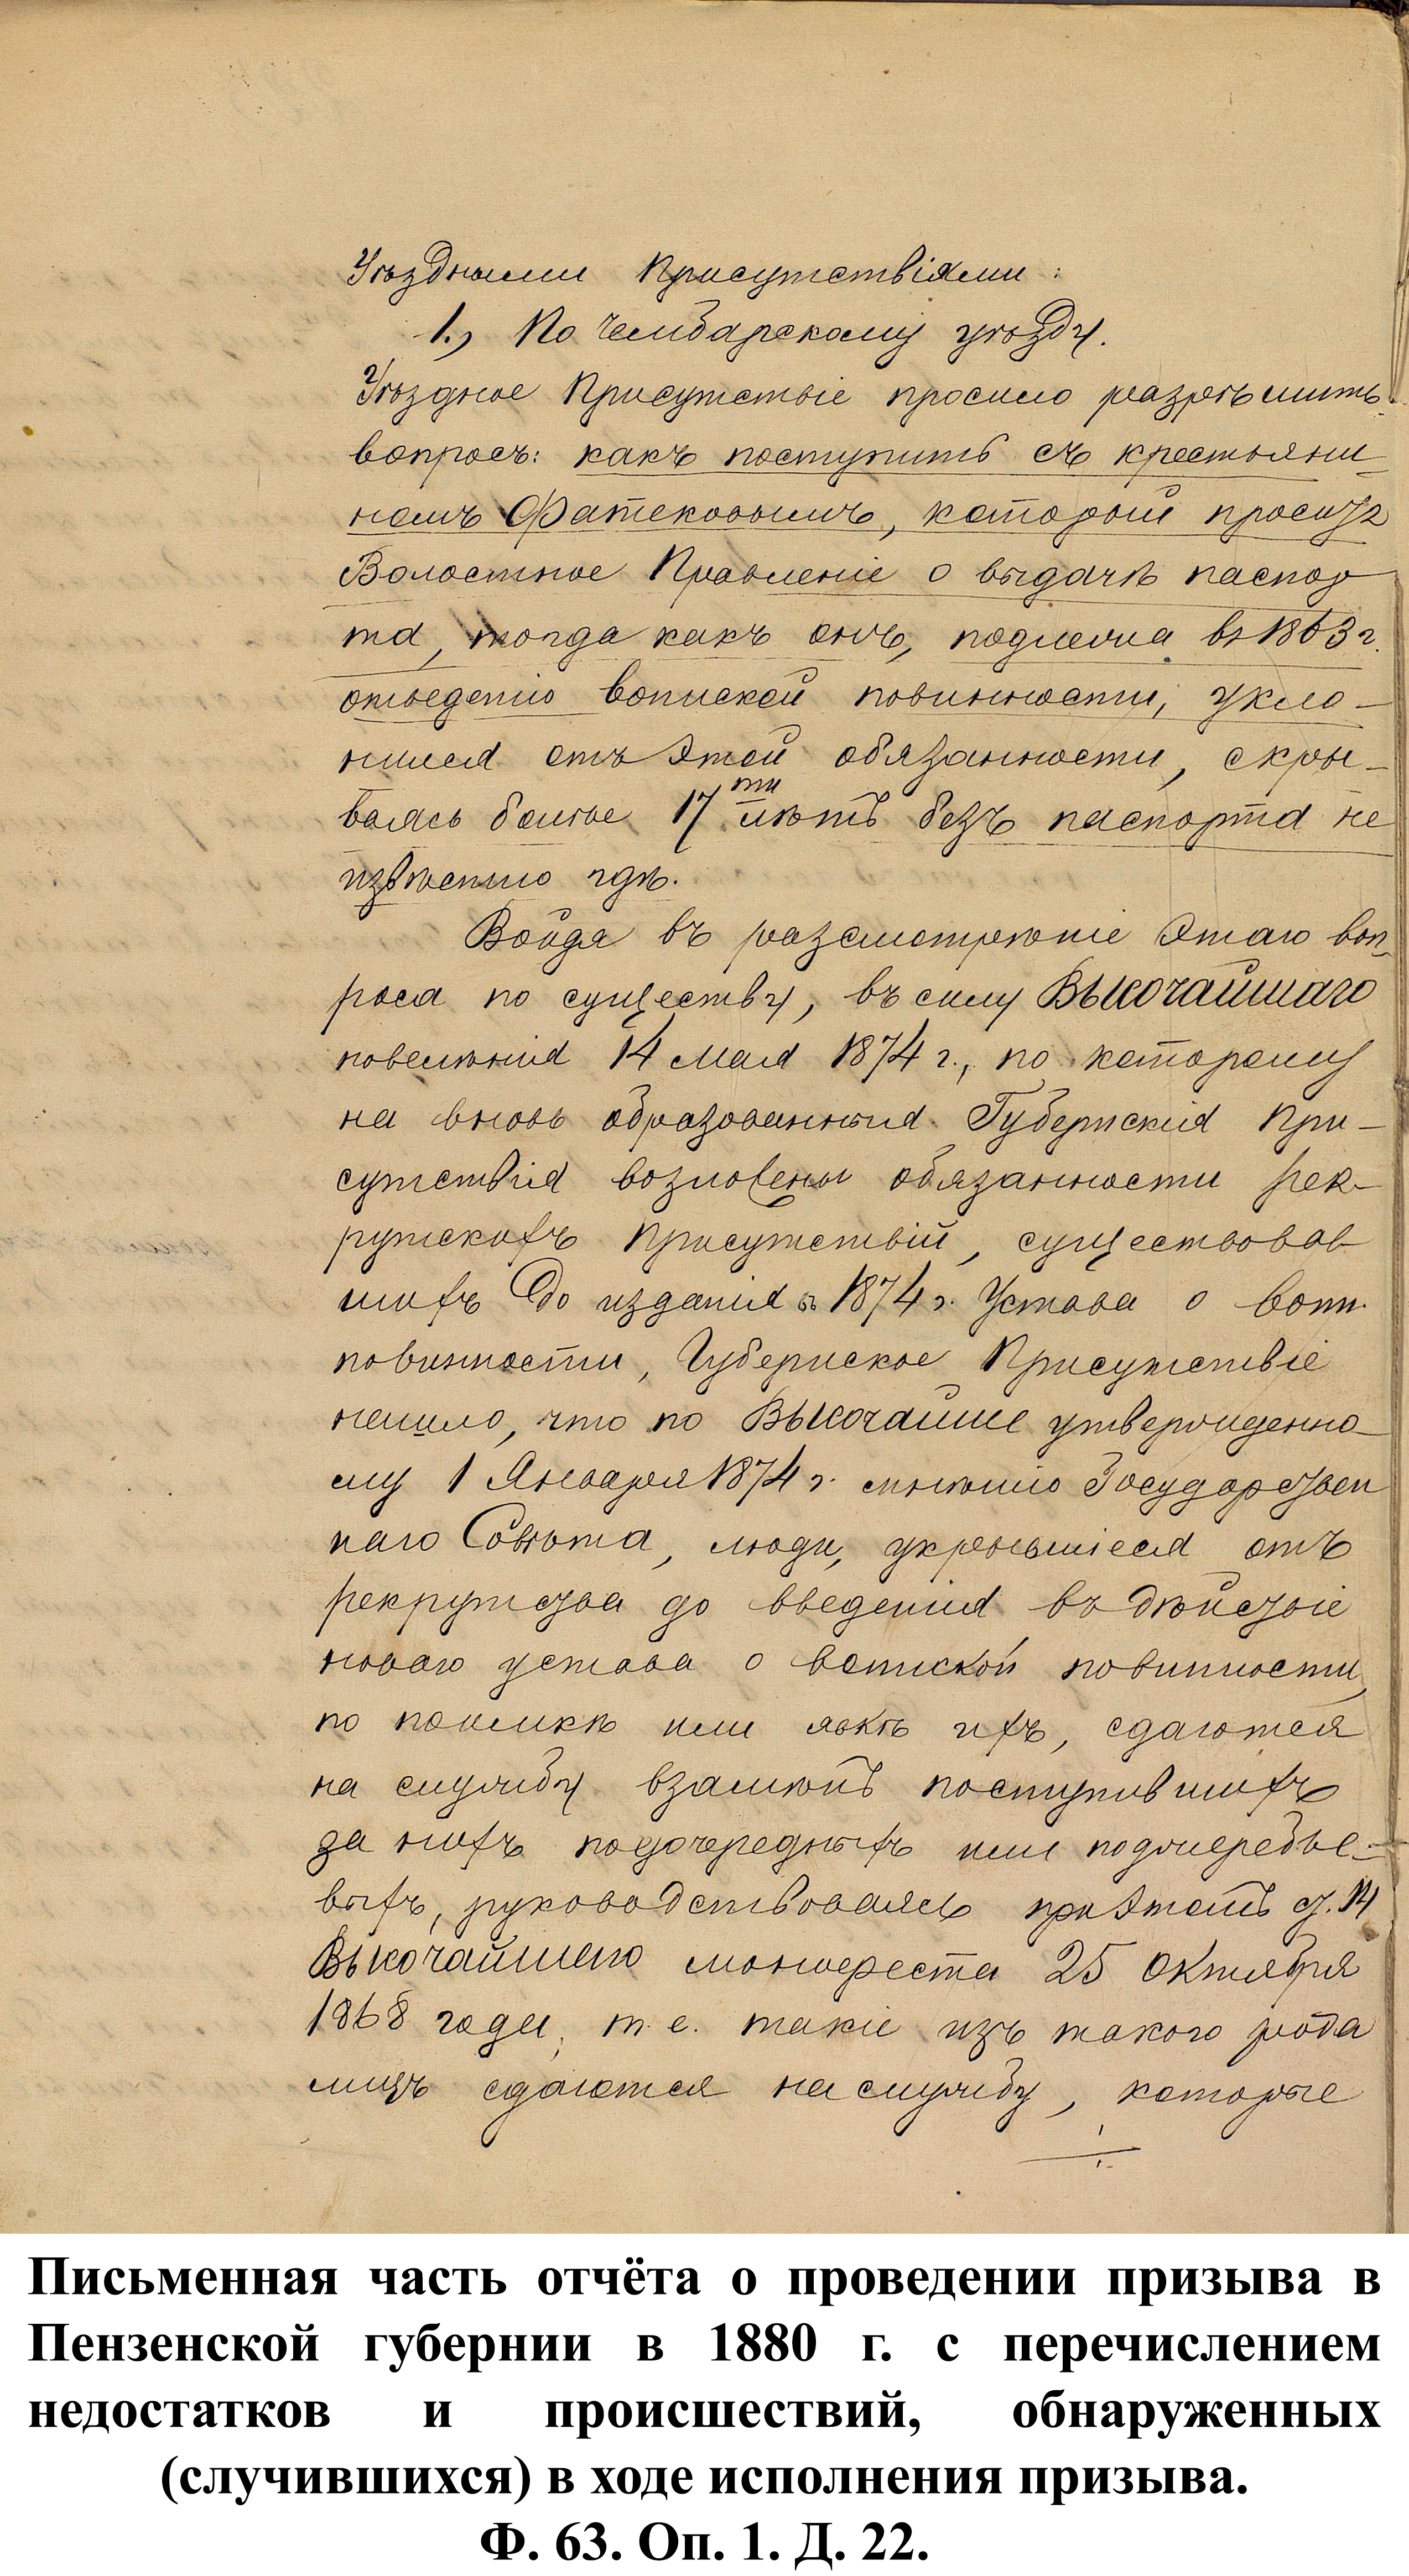 Уѣздными Присутствіями:
1., По Чембарскому уѣзду.
Уѣздное Присутствіе просило разрѣшить
вопросъ: какъ поступить съ крестьяни-
номъ Фатековымъ, который проситъ
Волостное Правленіе о выдачѣ паспор
та, тогда какъ онъ, подлежа въ 1863 г.
отбыванію воинской повинности, укло-
нился отъ этой обязанности, скры-
ваясь болѣе 17ти лѣтъ безъ паспорта не
извѣстно гдѣ.
Войдя въ разсмотрѣніе этаго воп-
роса по существу, въ силу Высочайшаго
повелѣнія 14 Мая 1874 г., по которому
на вновь образованныя Губернскія При-
сутствія возложены обязанности рек-
рутскихъ Присутствій, существовав
шихъ до изданія въ 1874 г. Устава о воин.
повинности, Губернское Присутствіе
нашло, что по Высочайше утвержденно-
му 1 Января 1874 г. мнѣнію Государствен
наго Совѣта, люди, укрывшіеся отъ
рекрутства до введенія въ дѣйствіе
новаго устава о воинской повинности,
по поимкѣ или явкѣ ихъ, сдаются
на службу взамѣнъ поступившихъ
за нихъ подочередныхъ или поджеребье-
выхъ, руководствоваясь при этомъ ст. 14
Высочайшего манифеста 25 Октября
1868 года, т. е. такіе изъ такого рода
лицъ сдаются на службу, которые
Письменная часть отчёта о проведении призыва в
Пензенской губернии в 1880 г. с перечислением
недостатков и происшествий, обнаруженных
(случившихся) в ходе исполнения призыва.
Ф. 63. Оп. 1. Д. 22.